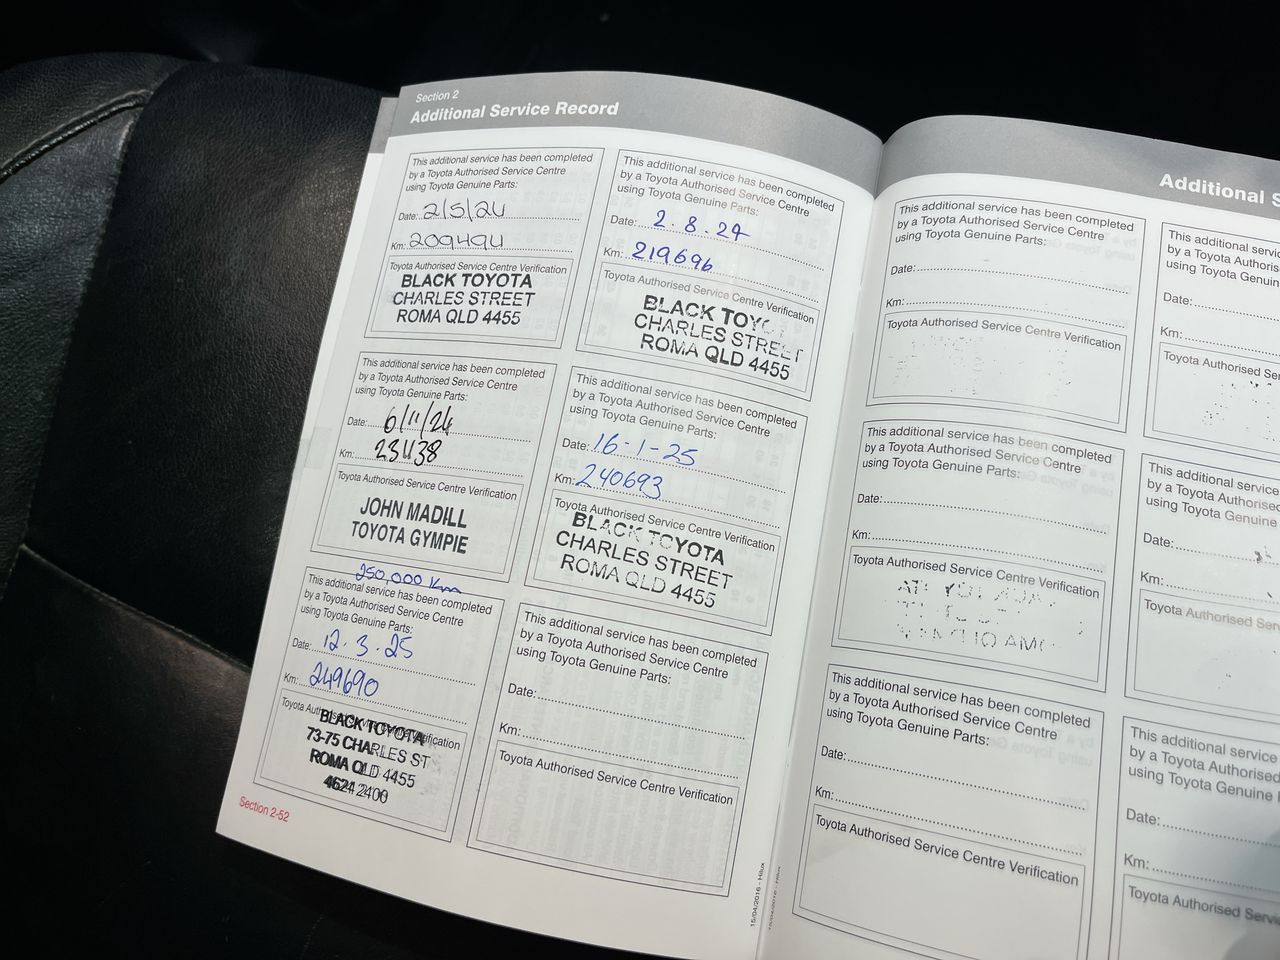 Section 2
Additional Service Record
This additional service has been completed
by a Toyota Authorised Service Centre
using Toyota Genuine Parts:
Date: 2/5/24
Km: 209494
Toyota Authorised Service Centre Verification
BLACK TOYOTA
CHARLES STREET
ROMA QLD 4455
This additional service has been completed
by a Toyota Authorised Service Centre
using Toyota Genuine Parts:
Date: 2.8.24
Km: 219696
Toyota Authorised Service Centre Verification
BLACK TOYOTA
CHARLES STREET
ROMA QLD 4455
This additional service has been completed
by a Toyota Authorised Service Centre
using Toyota Genuine Parts:
Date: 6/11/24
Km:
Toyota Authorised Service Centre Verification
JOHN MADILL
TOYOTA GYMPIE
This additional service has been completed
by a Toyota Authorised Service Centre
using Toyota Genuine Parts:
Date: 16-1-25
Km: 240693
Toyota Authorised Service Centre Verification
BLACK TOYOTA
CHARLES STREET
ROMA QLD 4455
250,000 Km
This additional service has been completed
by a Toyota Authorised Service Centre
using Toyota Genuine Parts:
Date: 12.3.25
Km: 249690
Toyota Authorised Service Centre Verification
BLACK TOYOTA
73-75 CHARLES ST
ROMA QLD 4455
4624 2400
This additional service has been completed
by a Toyota Authorised Service Centre
using Toyota Genuine Parts:
Date:
Km:
Toyota Authorised Service Centre Verification
Section 2-52
15/04/2016 - Hilux
Additional S
This additional service has been completed
by a Toyota Authorised Service Centre
using Toyota Genuine Parts:
Date:
Km:
Toyota Authorised Service Centre Verification
This additional service
by a Toyota Authoris
using Toyota Genuin
Date:
Km:
Toyota Authorised Se
This additional service has been completed
by a Toyota Authorised Service Centre
using Toyota Genuine Parts:
Date:
Km:
Toyota Authorised Service Centre Verification
This additional service
by a Toyota Authorised
using Toyota Genuine
Date:
Km:
Toyota Authorised Ser
This additional service has been completed
by a Toyota Authorised Service Centre
using Toyota Genuine Parts:
Date:
Km:
Toyota Authorised Service Centre Verification
This additional service
by a Toyota Authorised
using Toyota Genuine
Date:
Km:
Toyota Authorised Serv